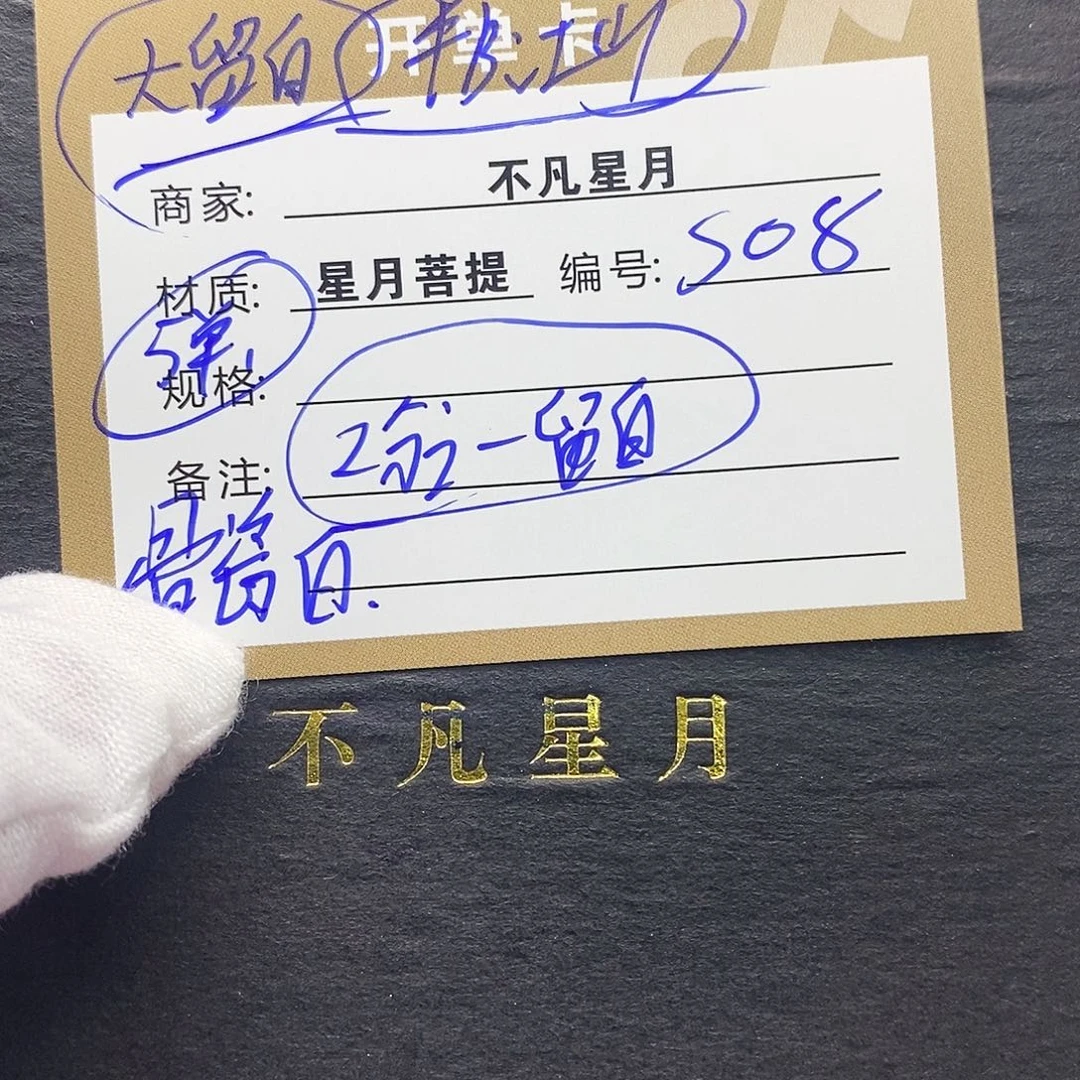 开单卡
大留白
商家: 不凡星月
材质: 星月菩提 编号: S08
5单
规格:
2合一留白
备注:
留白.
不凡星月